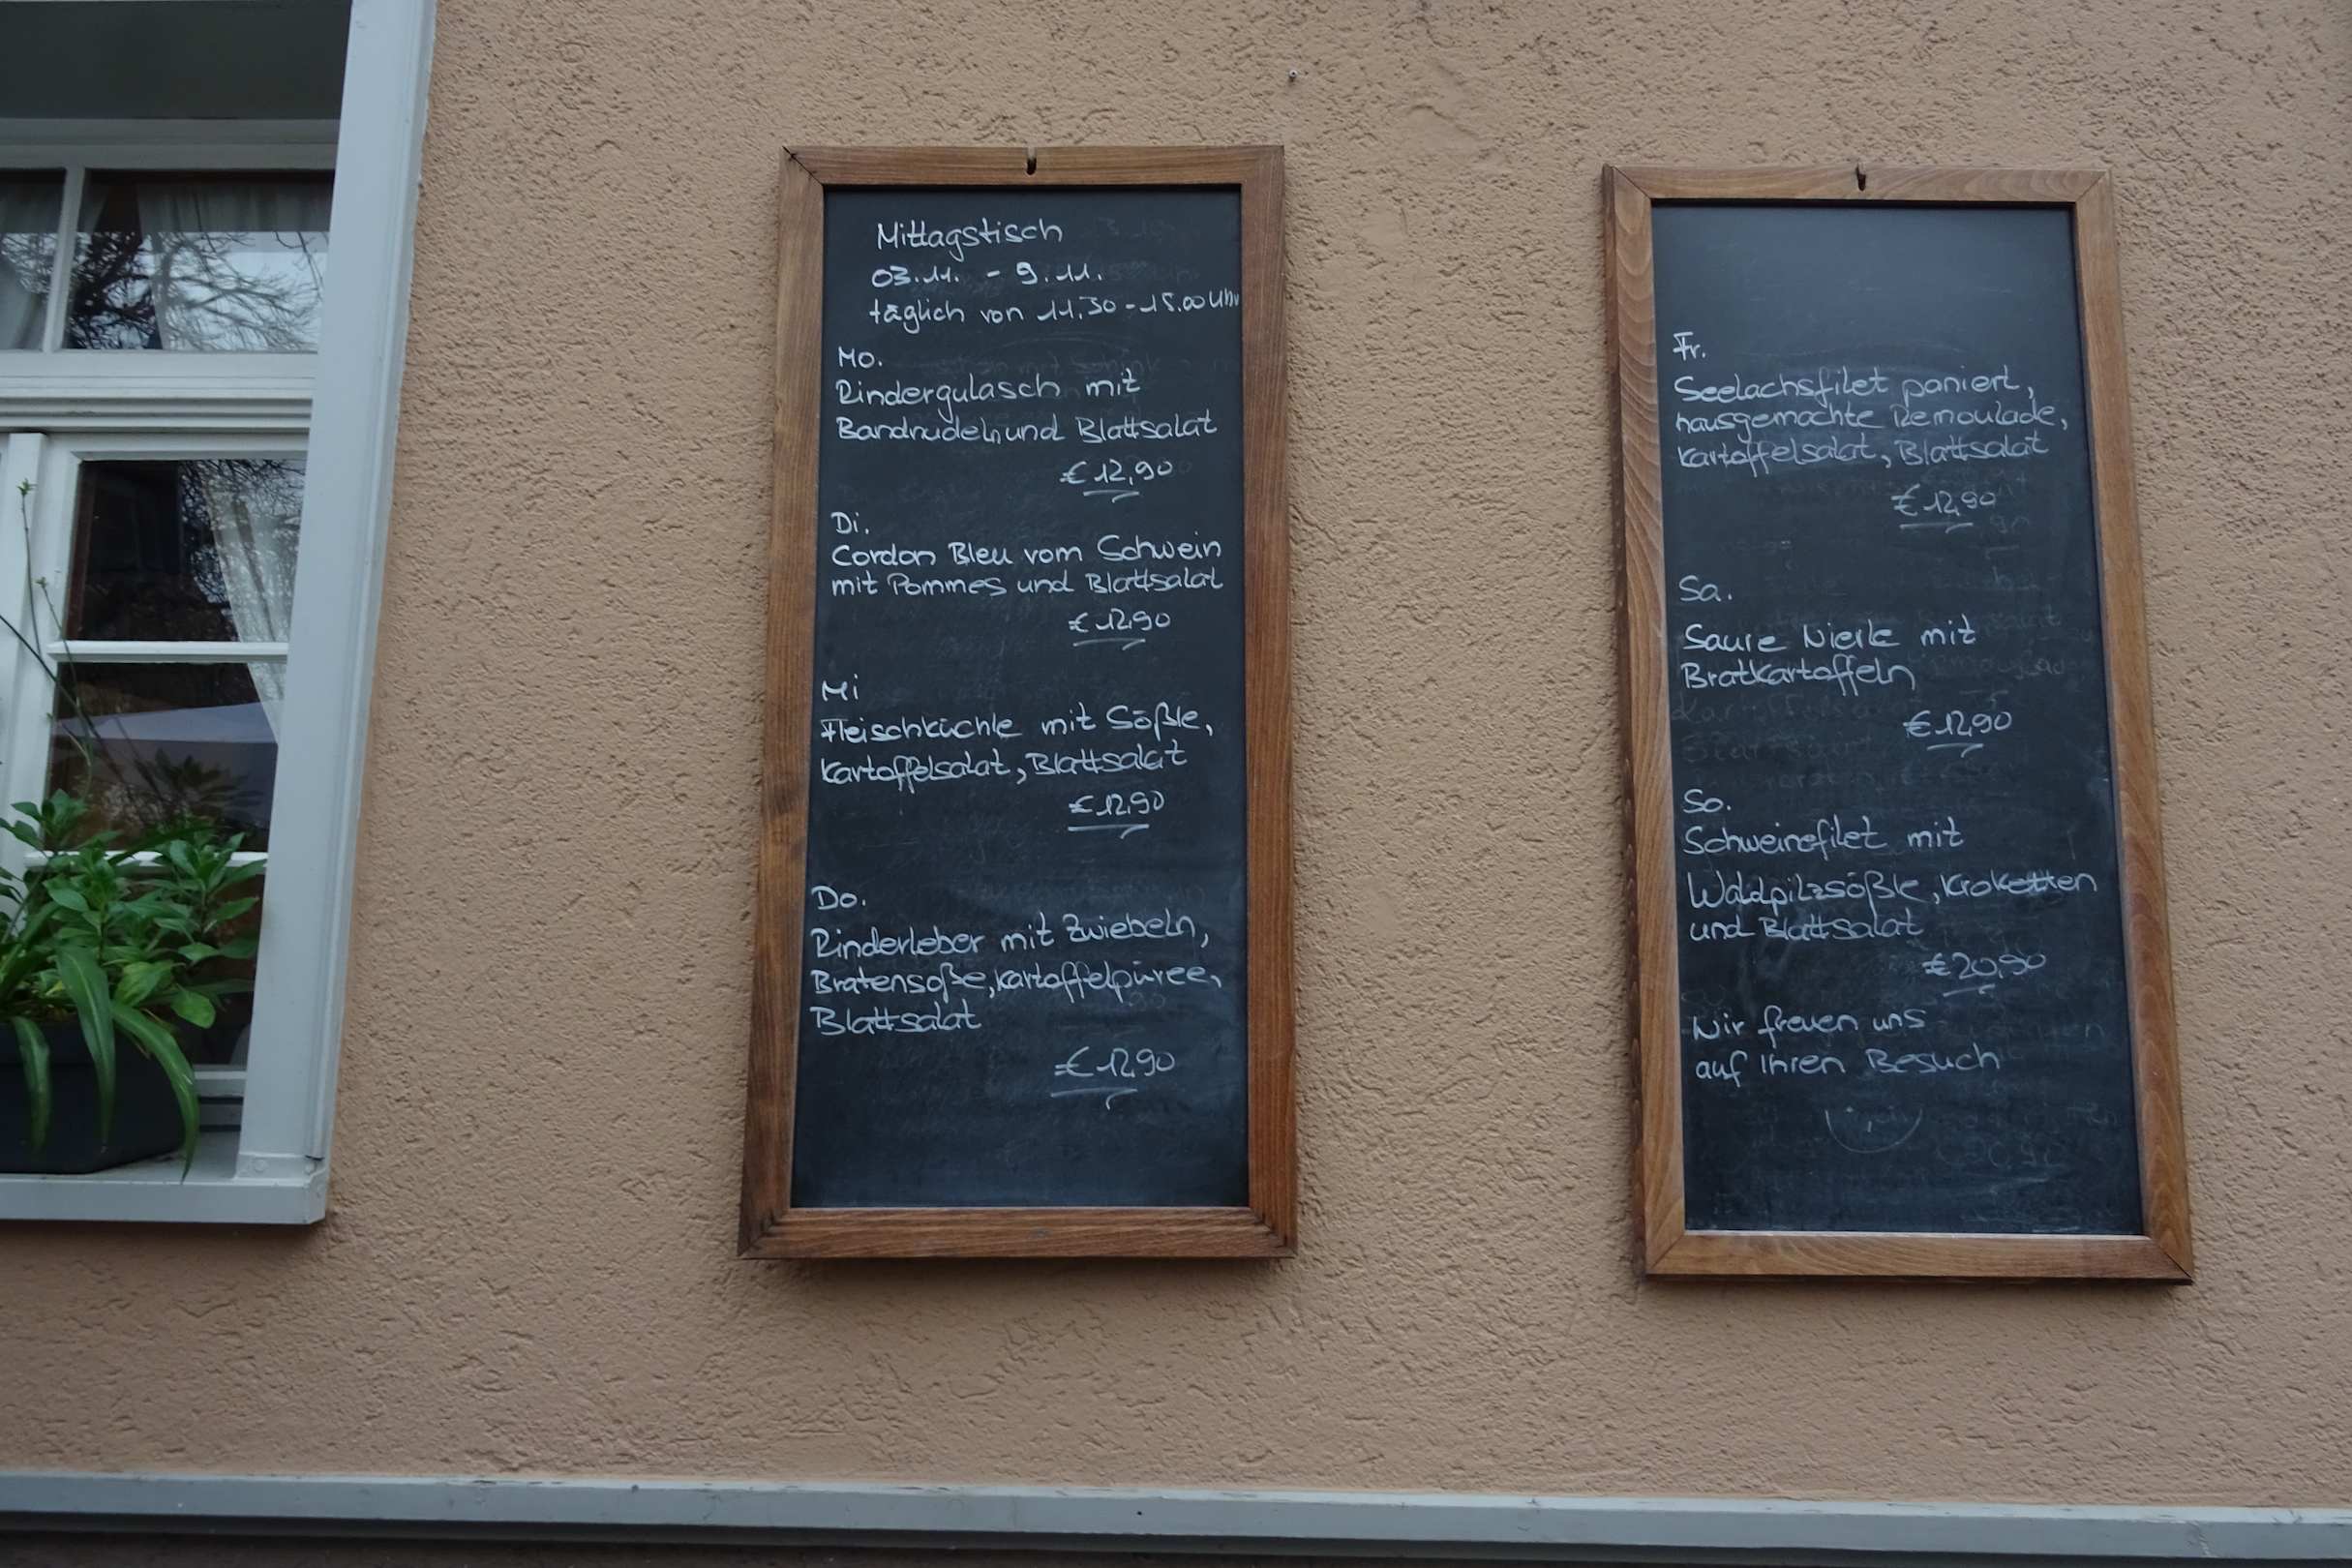 Mittagstisch
03.11. - 9.11.
täglich von 11.30 - 15.00 Uhr
Mo.
Rindergulasch mit
Bandnudeln und Blattsalat
€ 12,90
Di.
Cordon Bleu vom Schwein
mit Pommes und Blattsalat
€ 12,90
Mi
Fleischküchle mit Sößle,
Kartoffelsalat, Blattsalat
€ 12,90
Do.
Rinderleber mit Zwiebeln,
Bratensoße, Kartoffelpüree,
Blattsalat
€ 12,90
Fr.
Seelachsfilet paniert,
hausgemachte Remoulade,
Kartoffelsalat, Blattsalat
€ 12,90
Sa.
Saure Nierle mit
Bratkartoffeln
€ 12,90
So.
Schweinefilet mit
Waldpilzsößle, Kroketten
und Blattsalat
€ 20,90
Wir freuen uns
auf Ihren Besuch